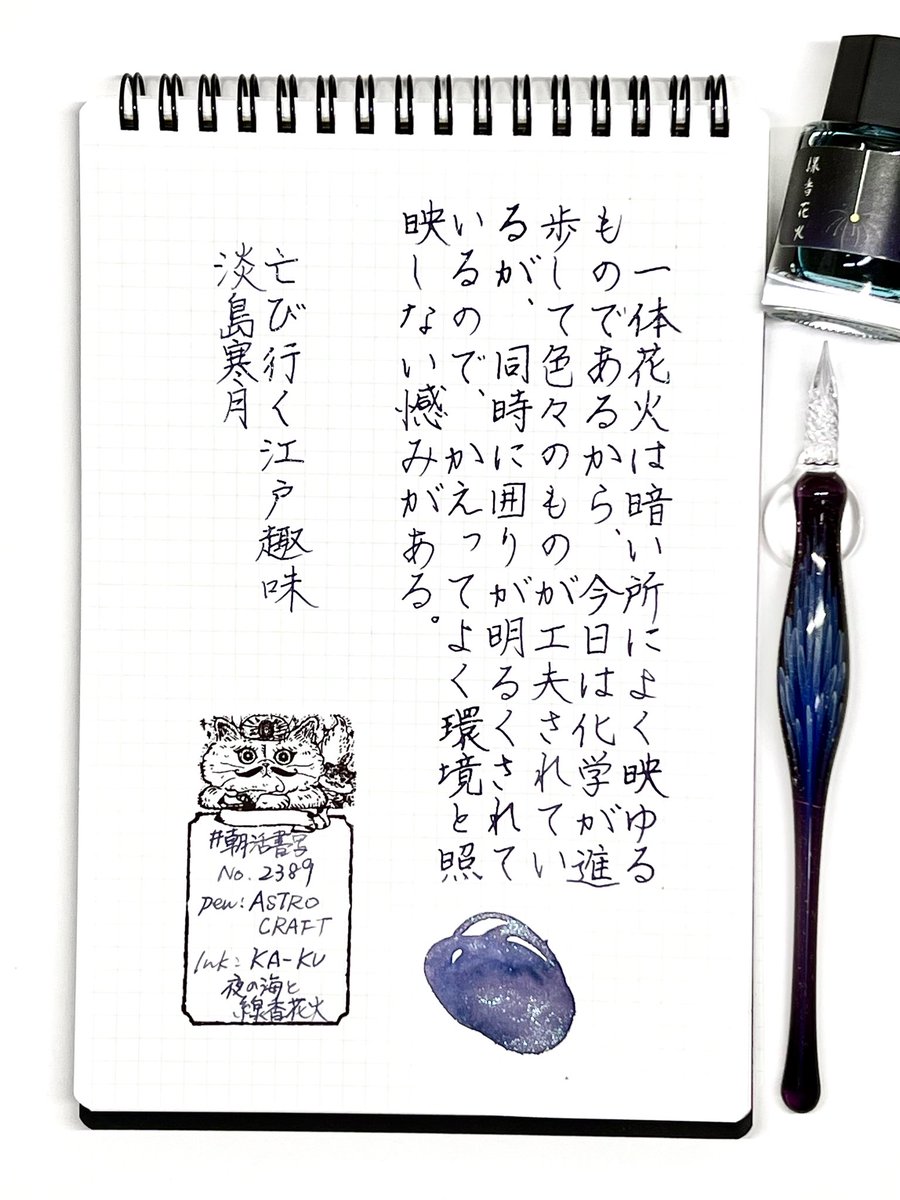 一体花火は暗い所によく映ゆる
ものであるから、今日は化学が進
歩して色々のものが工夫されてい
るが、同時に囲りが明るくされて
いるので、かえってよく環境と照
映しない憾みがある。
亡び行く江戸趣味
淡島寒月
#朝活書写
No.2389
pen: ASTRO
CRAFT
Ink: KA-KU
夜の海と
線香花火
線香花火